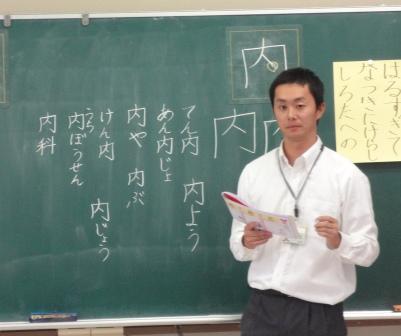 はるすぎて
なつきにけらし
しろたへの
内
内
内
てん内　内よう
あん内じょ
内や　内ぶ
けん内　内じょう
うち
内ぼうせん
内科